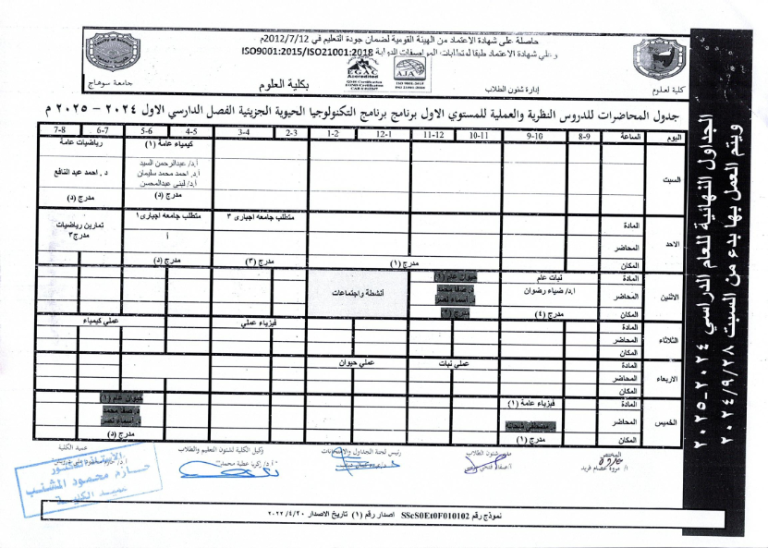 حاصلة على شهادة الاعتماد من الهيئة القومية لضمان جودة التعليم في 2012/7/12
وعلى شهادة الاعتماد طبقا لمتطلبات المواصفات الدولية ISO9001:2015/ISO21001:2018
EGAC
AJA
كلية العلوم
إدارة شئون الطلاب
بكلية العلوم
جامعة سوهاج
جدول المحاضرات للدروس النظرية والعملية للمستوي الاول برنامج برنامج التكنولوجيا الحيوية الجزيئية الفصل الدارسي الاول ٢٠٢٤ - ٢٠٢٥ م
اليوم الساعة 8-9 9-10 10-11 11-12 12-1 1-2 2-3 3-4 4-5 5-6 6-7 7-8
السبت
كيمياء عامة (١) رياضيات عامة
أ.د/ عبدالرحمن السيد
أ.د/ احمد محمد سليمان
أ.د/ لبنى عبدالمحسن
د. احمد عبد النافع
مدرج (د) مدرج (د)
الاحد
المادة متطلب جامعه اجبارى ٣ متطلب جامعه اجبارى١ تمارين رياضيات
مدرج٣
المحاضر أ
المكان مدرج (١) مدرج (٣) مدرج (د)
الاثنين
المادة نبات عام حيوان عام (١)
المحاضر أ.د/ ضياء رضوان د. صفا محمد
د. أسماء نصر
أنشطة واجتماعات
المكان مدرج (٤) مدرج (٤)
الثلاثاء
المادة فيزياء عملي عملي كيمياء
المحاضر
المكان
الاربعاء
المادة عملي نبات عملي حيوان
المحاضر
المكان
الخميس
المادة فيزياء عامة (١) حيوان عام (١)
المحاضر مصطفى شحاتة د. صفا محمد
د. أسماء نصر
المكان مدرج (١) مدرج (د)
المختص
أ/ مروة عصام فريد
شئون الطلاب
رئيس لجنة الجداول والامتحانات
وكيل الكلية لشئون التعليم والطلاب
أ.د/ زكريا عطية محمد
عميد الكلية
الأستاذ الدكتور
حازم محمود المشنب
عميد الكلية
نموذج رقم SScS0Et0F010102 اصدار رقم (١) تاريخ الاصدار ٢٠٢٢/٤/٢٠
الجداول النهائية للعام الدراسي ٢٠٢٤-٢٠٢٥
ويتم العمل بها بدء من السبت ٢٠٢٤/٩/٢٨